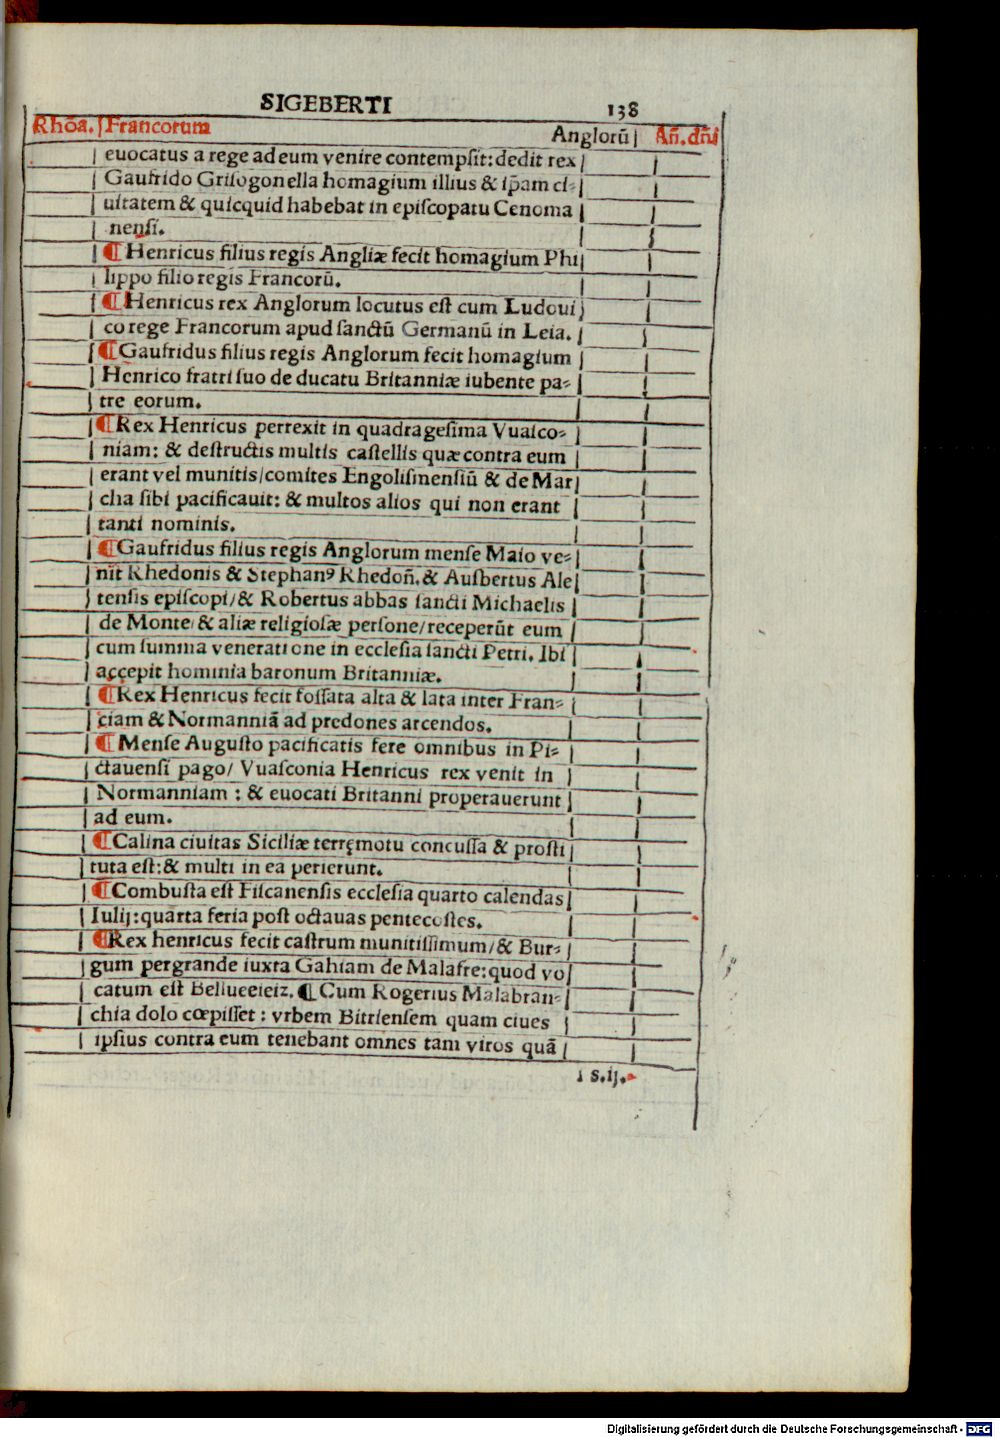 SIGEBERTI 138
Rhõa. Francorum Anglorũ Añ.dñi
euocatus a rege ad eum venire contempsit: dedit rex
Gaufrido Grisogonella homagium illius & ip̃am ci⸗
uitatem & quicquid habebat in episcopatu Cenoma
nensi.
¶ Henricus filius regis Angliæ fecit homagium Phi
lippo filio regis Francorũ.
¶ Henricus rex Anglorum locutus est cum Ludoui
co rege Francorum apud sanctũ Germanũ in Leia.
¶ Gaufridus filius regis Anglorum fecit homagium
Henrico fratri suo de ducatu Britanniæ iubente pa⸗
tre eorum.
¶ Rex Henricus perrexit in quadragesima Vuasco⸗
niam: & destructis multis castellis quæ contra eum
erant vel munitis/comites Engolismensiũ & de Mar
cha sibi pacificauit: & multos alios qui non erant
tanti nominis.
¶ Gaufridus filius regis Anglorum mense Maio ve⸗
nit Rhedonis & Stephanꝰ Rhedoñ. & Ausbertus Ale
tensis episcopi/& Robertus abbas sancti Michaelis
de Monte/ & aliæ religiosæ persone/receperũt eum
cum summa veneratione in ecclesia sancti Petri. Ibi
accepit hominia baronum Britanniæ.
¶ Rex Henricus fecit fossata alta & lata inter Fran⸗
ciam & Normanniã ad predones arcendos.
¶ Mense Augusto pacificatis fere omnibus in Pi⸗
ctauensi pago/ Vuasconia Henricus rex venit in
Normanniam : & euocati Britanni properauerunt
ad eum.
¶ Calina ciuitas Siciliæ terręmotu concussa & prosti
tuta est: & multi in ea perierunt.
¶ Combusta est Fiscanensis ecclesia quarto calendas
Iulij: quarta feria post octauas pentecostes.
¶ Rex henricus fecit castrum munitissimum/& Bur⸗
gum pergrande iuxta Gahiam de Malafre: quod vo
catum est ¶ Cum Rogerius Malabran⸗
chia dolo cœpisset : vrbem Bitriensem quam ciues
ipsius contra eum tenebant omnes tam viros quã
s.ij.
Digitalisierung gefördert durch die Deutsche Forschungsgemeinschaft - DFG